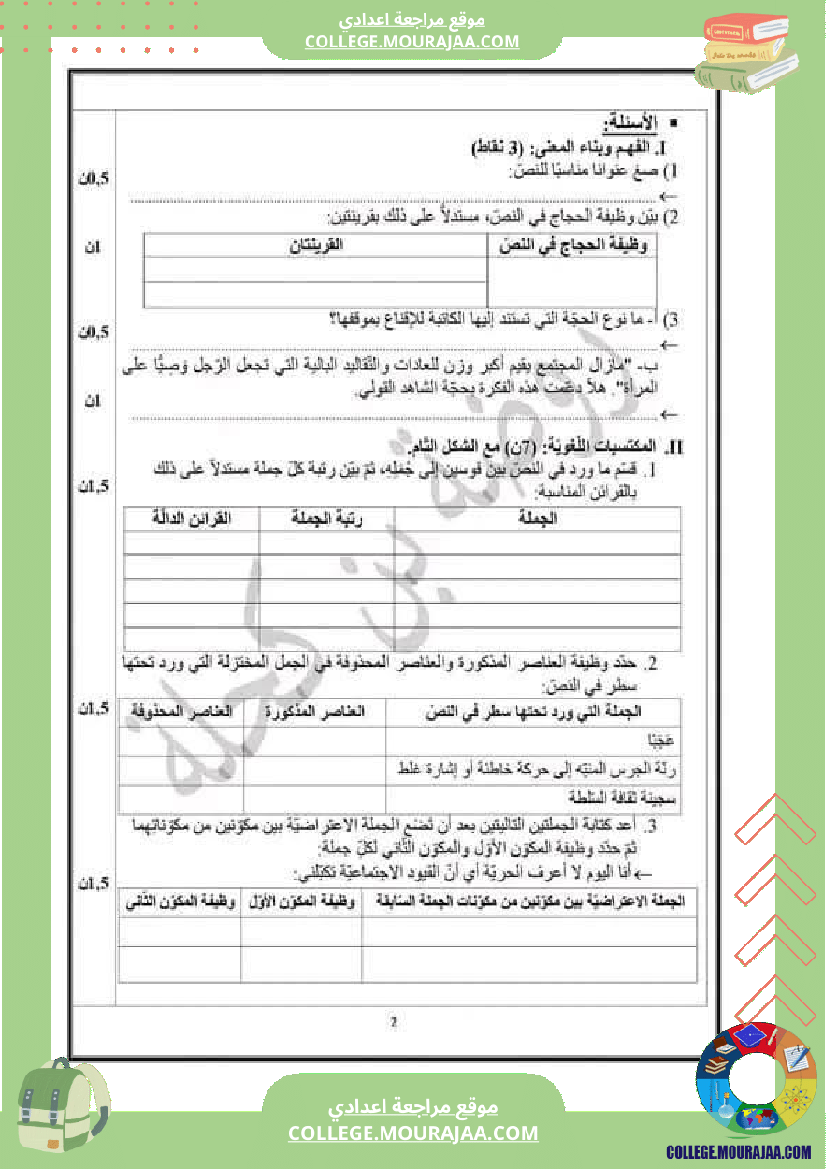 موقع مراجعة اعدادي
COLLEGE.MOURAJAA.COM
▪ الأسئلة:
I. الفهم وبناء المعنى: (3 نقاط)
1) صغ عنوانا مناسبًا للنصّ: 0,5ن
←
2) بيّن وظيفة الحجاج في النصّ، مستدلاًّ على ذلك بقرينتين:
وظيفة الحجاج في النصّ القرينتان 1ن
3) أ- ما نوع الحجّة التي تستند إليها الكاتبة للإقناع بموقفها؟
← 0,5ن
ب- "مازال المجتمع يقيم أكبر وزن للعادات والتّقاليد البالية التي تجعل الرّجل وَصِيًّا على
المرأة". هلاّ دعّمت هذه الفكرة بحجّة الشاهد القولي. 1ن
←
II. المكتسبات اللّغويّة: (7ن) مع الشكل التّام.
1. قسّم ما ورد في النصّ بين قوسين إلى جُمَلِه، ثمّ بيّن رتبة كلّ جملة مستدلاّ على ذلك
بالقرائن المناسبة: 1,5ن
الجملة رتبة الجملة القرائن الدالّة
2. حدّد وظيفة العناصر المذكورة والعناصر المحذوفة في الجمل المختزلة التي ورد تحتها
سطر في النصّ:
الجملة التي ورد تحتها سطر في النصّ العناصر المذكورة العناصر المحذوفة 1,5ن
عَجَبًا
رنّة الجرس المنبّه إلى حركة خاطئة أو إشارة غلط
سجينة ثقافة السّلطة
3. أعد كتابة الجملتين التاليتين بعد أن تَضَع الجملة الاعتراضيّة بين مكوّنين من مكوّناتهما
ثمّ حدّد وظيفة المكوّن الأوّل والمكوّن الثّاني لكلّ جملة:
← أنا اليوم لا أعرف الحريّة أي أنّ القيود الاجتماعيّة تكبّلني: 1,5ن
الجملة الاعتراضيّة بين مكوّنين من مكوّنات الجملة السّابقة وظيفة المكوّن الأوّل وظيفة المكوّن الثّاني
2
موقع مراجعة اعدادي
COLLEGE.MOURAJAA.COM
COLLEGE.MOURAJAA.COM